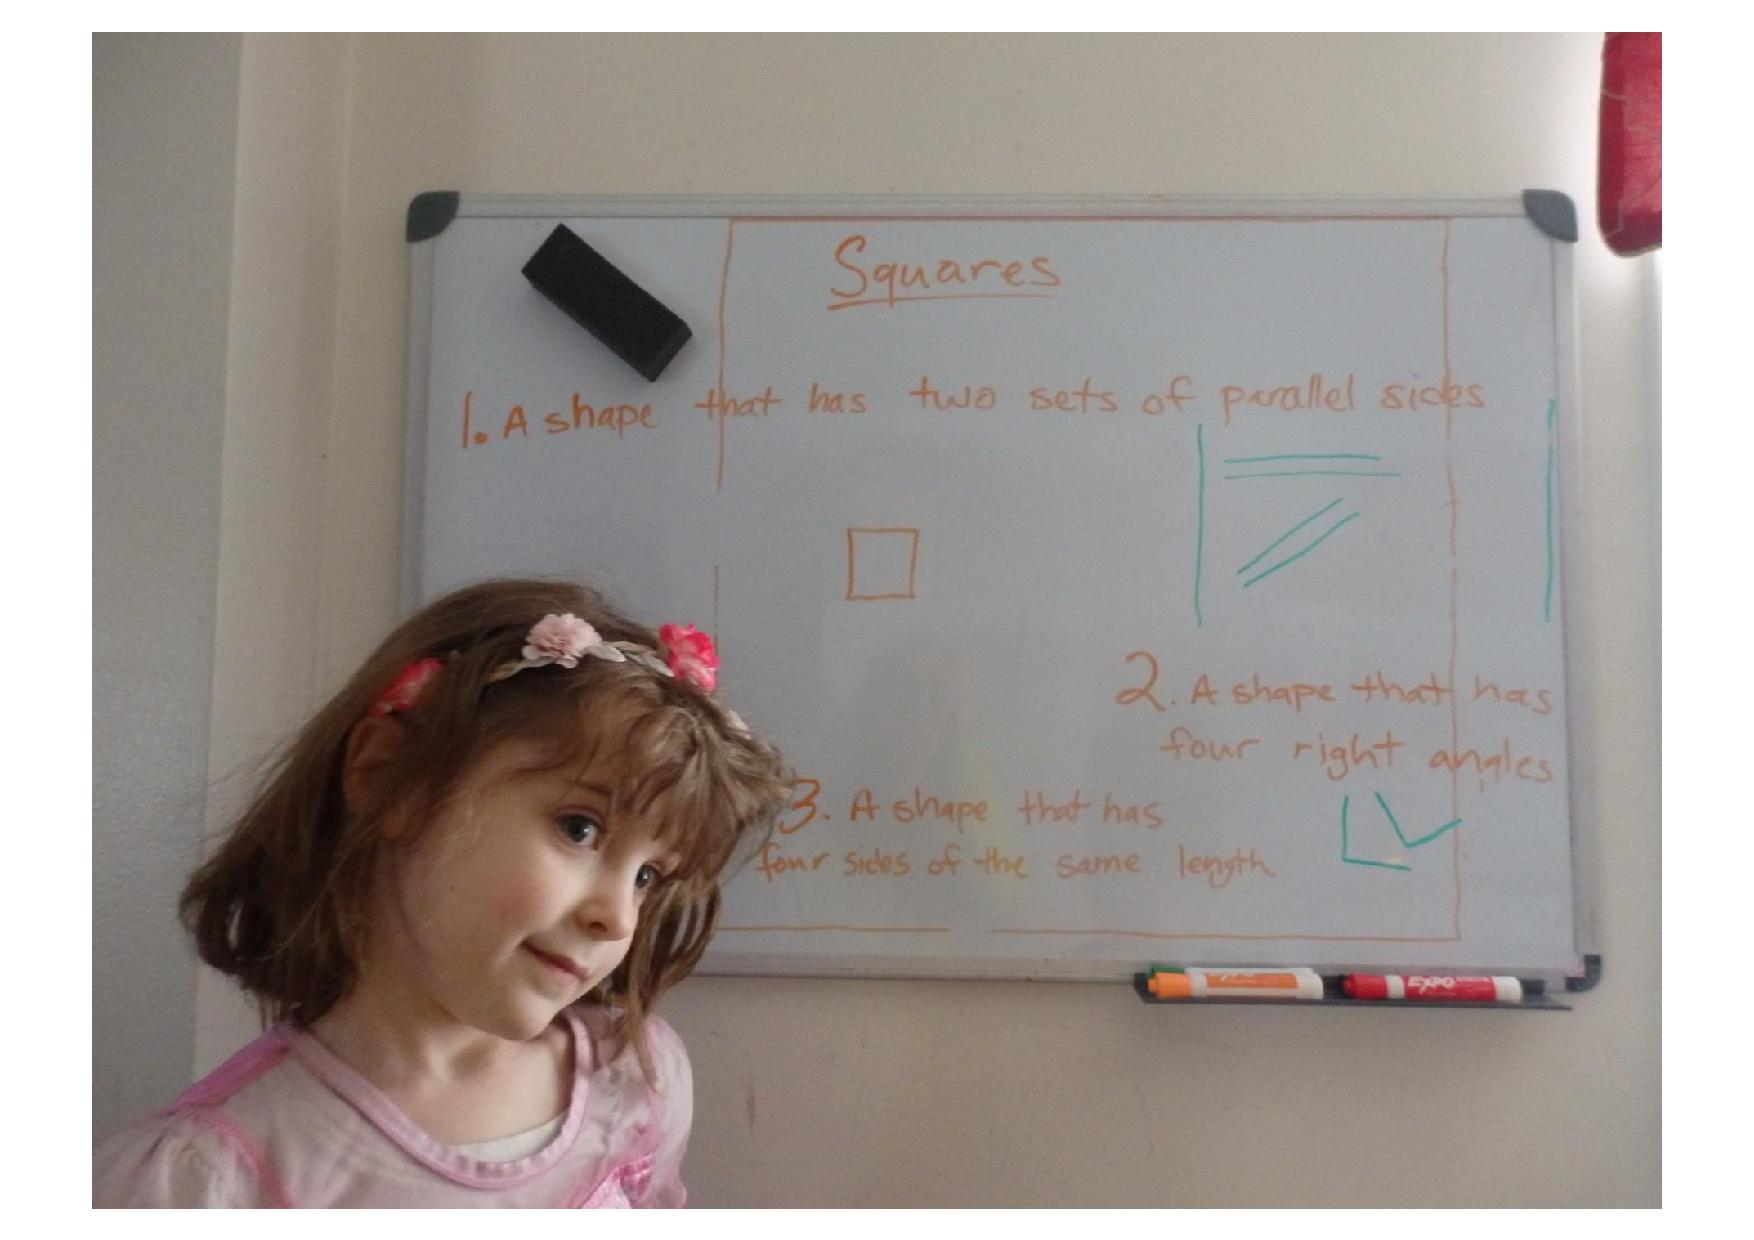 Squares
1. A shape that has two sets of parallel sides
2. A shape that has
four right angles
3. A shape that has
four sides of the same length
EXPO
EXPO